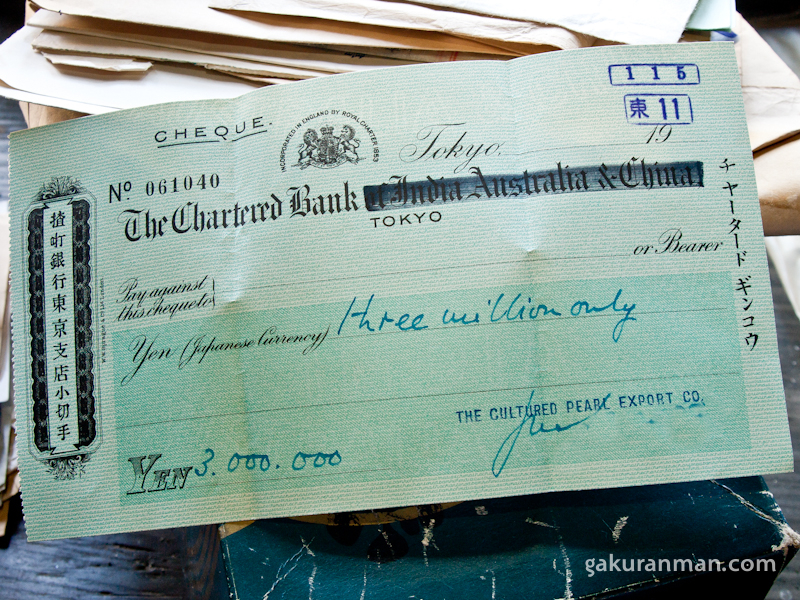 115
東11
CHEQUE.
INCORPORATED IN ENGLAND BY ROYAL CHARTER 1853
Tokyo. 19
No 061040
The Chartered Bank of India Australia & China
TOKYO
or Bearer
Pay against
this cheque to
Yen (Japanese Currency) three million only
THE CULTURED PEARL EXPORT CO.
YEN 3.000.000
渣打銀行東京支店小切手
チャータード ギンコウ
gakuranman.com